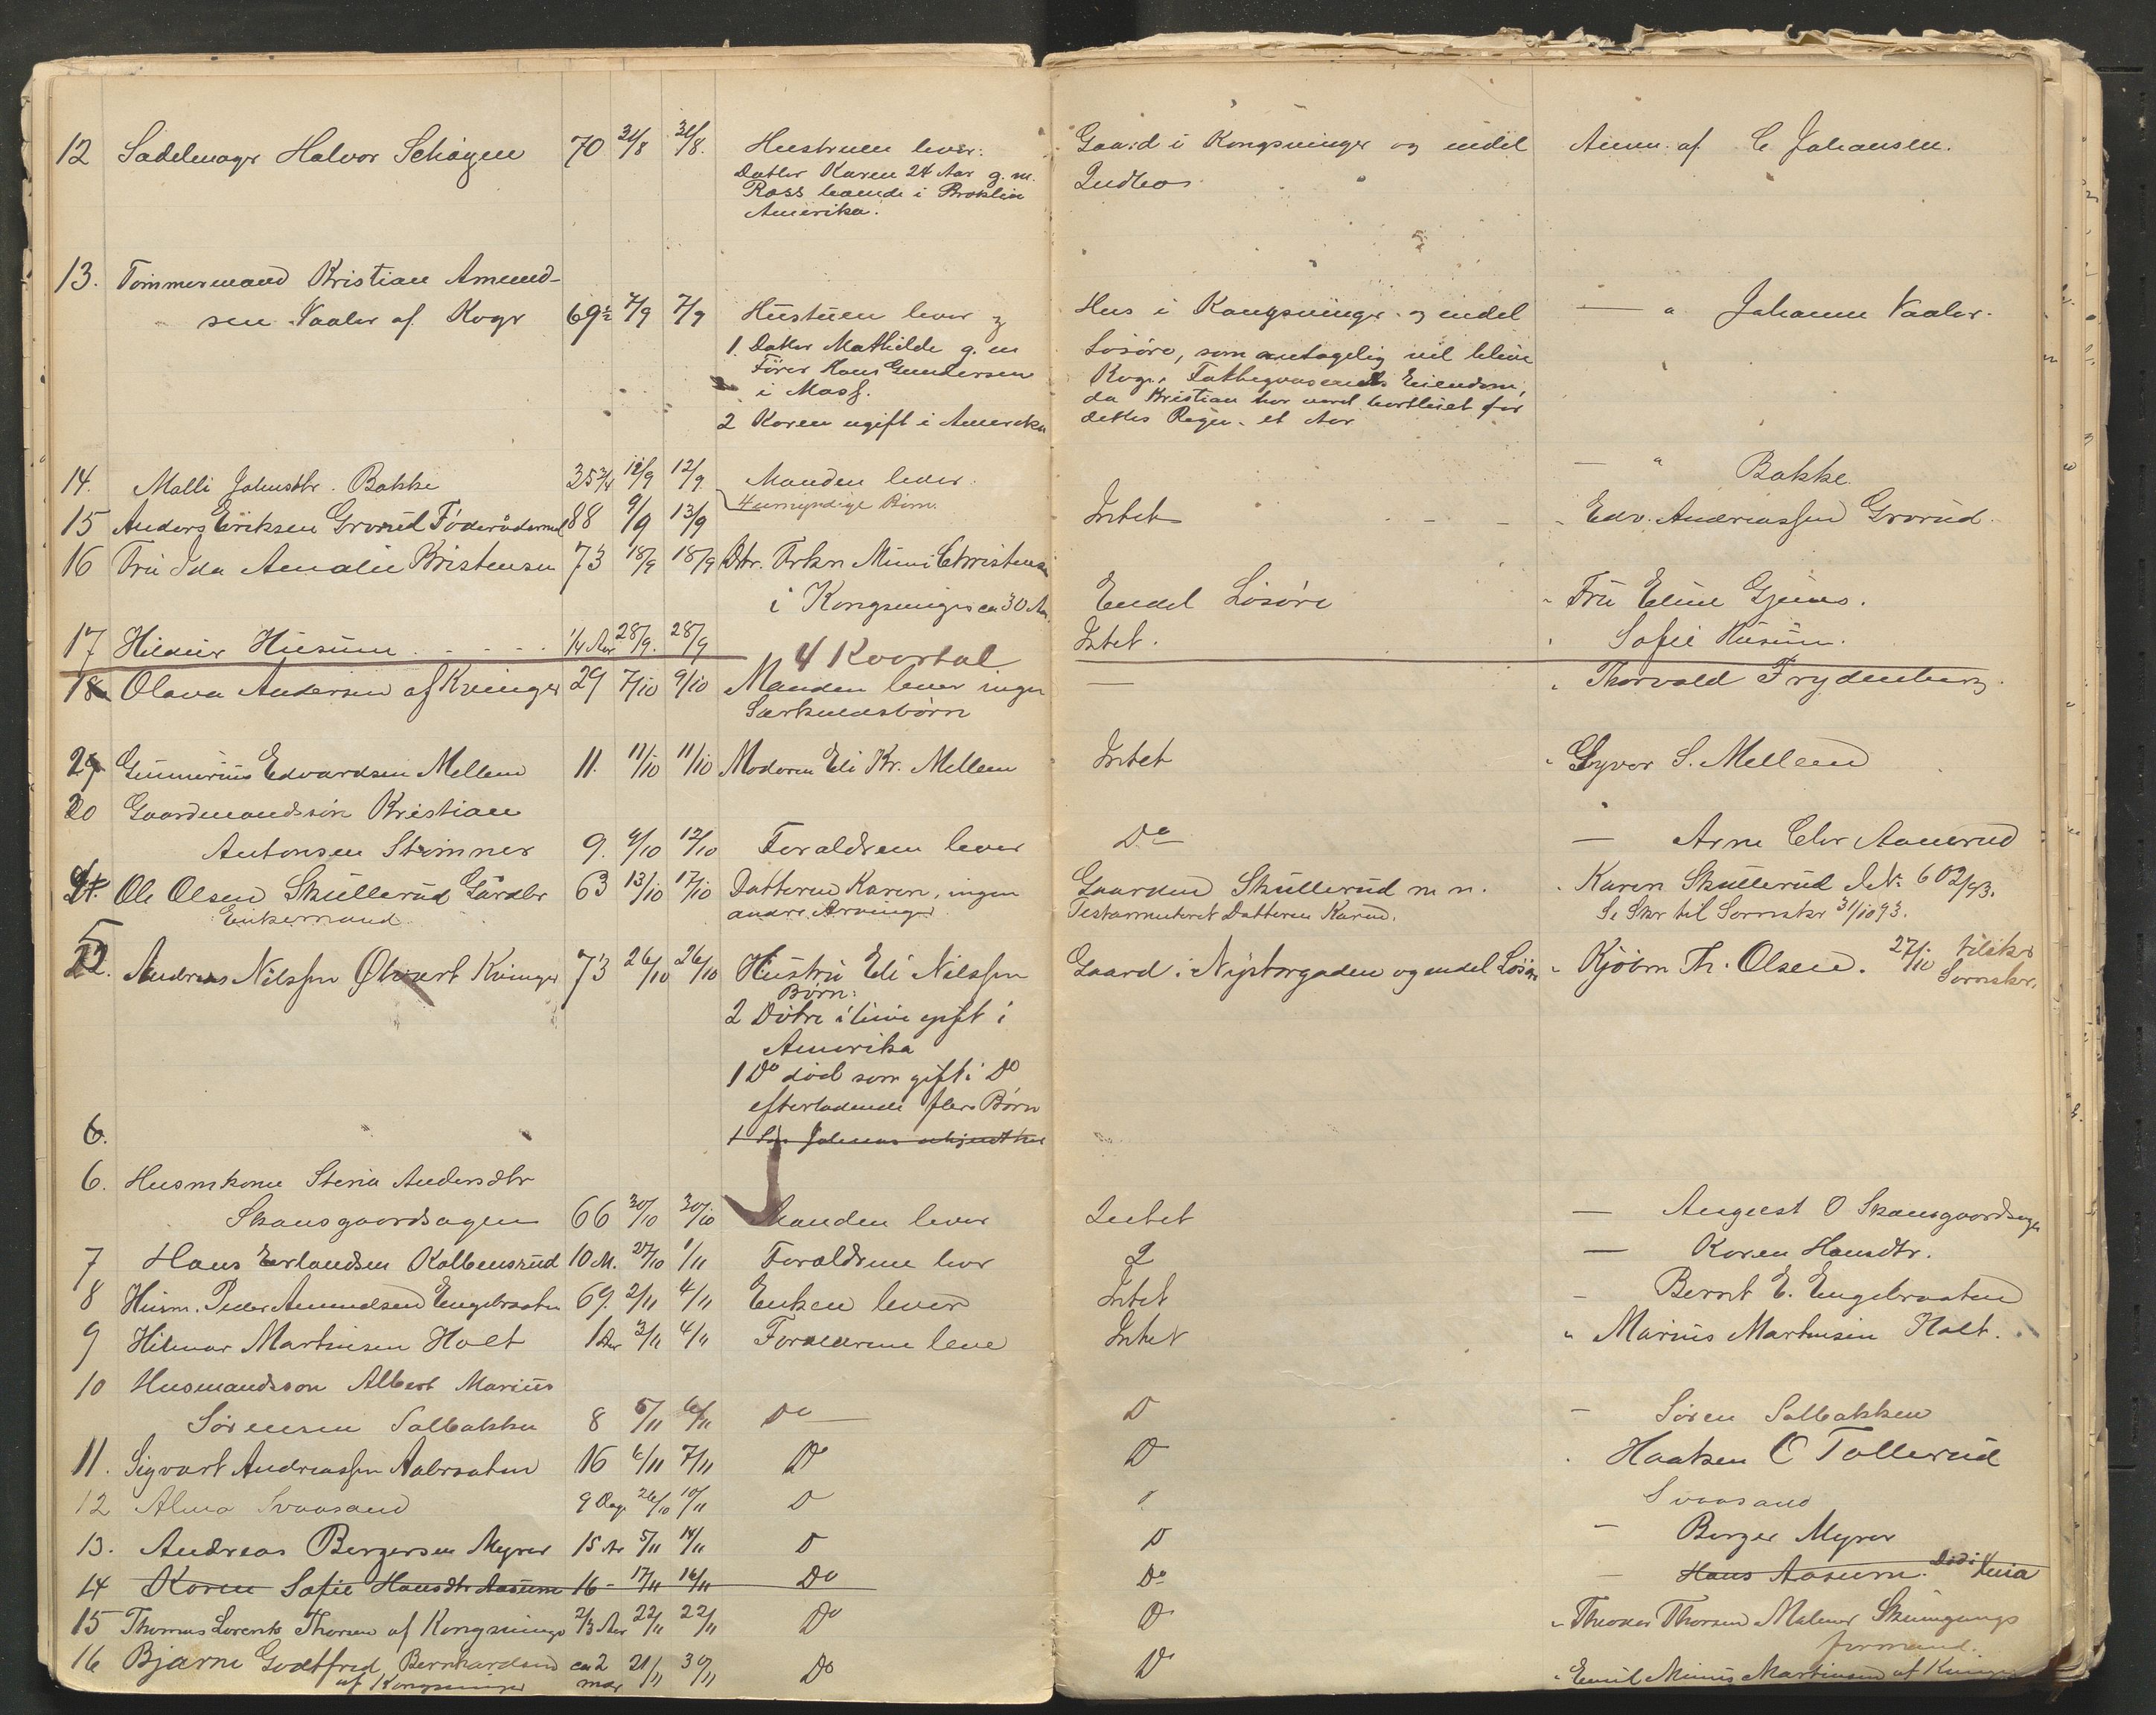 12 Sadelmager Halvor Schøyen 70 31/8 31/8. Hustruen lever: Gaard i Kongsvinger og endel Anm. af C. Johansen.
Datter Karen 24 Aar g. m. Indbo
Ross boende i Broklin
Amerika.
13. Tømmermand Kristian Amund-
sen Vaaler af Kvgr 69½ 7/9 7/9 Hustruen lever og Hus i Kongsvinger og endel — " Johanne Vaaler.
1. Datter Mathilde g. m Løsøre, som antagelig vil blive
Fører Hans Gundersen Kvgrs Fattigvæsends Eiendom,
i Moss. da Kristian har været bortleiet for
2 Karen ugift i Amerika dettes Regn. et Aar
14. Malli Johnsdtr. Bakke 35¾ 12/9 12/9 Manden lever. — " Bakke.
4 umyndige Børn.
15 Anders Eriksen Grorud Føderådsmd 88 9/9 13/9 Intet - - - Edv. Andreassen Grorud.
16 Fru Ida Amalie Kristensen 73 18/9 18/9 Dtr. Frkn Mimi Christensen
i Kongsvinger ca 30 Aar Endel Løsøre " Fru Eline Gjems.
17 Hildur Husum . - - - . 1/4 Aar 28/9. 28/9 Intet. " Sofie Husum.
4 Kvartal
18 Olava Andersen af Kvinger 29 7/10 9/10 Manden lever ingen — " Thorvald Frydenberg.
Særkuldsbørn
2 Gunnerius Edvardsen Mellem 11. 11/10 11/10 Moderen Eli Kr. Mellem Intet " Syver S. Mellem
20 Gaardmandssøn Kristian
Antonsen Strimner 9. 9/10 12/10 Forældrene lever Do — Arne Chr Aamerud
Ole Olsen Skullerud Gårdbr 63 13/10 17/10 Datteren Karen, ingen Gaarden Skullerud m m. " Karen Skullerud J.N. 602/93.
Enkemand andre Arvinger Testamenteret Datteren Karen. Se Skr til Sornskr 31/10 93.
5
22. Andreas Nilssen Kvinger 73 26/10 26/10 Hustru Eli Nilssen Gaard i Nystorgaden og endel Løsøre " Kjøbm Th. Olsen. 27/10 tilskr Sornskr.
Børn:
2 Døtre i live gift i
Amerika
1 Do død som gift i Do
efterladende flere Børn
6. 1 Søn Johannes
6. Husmkone Stena Andersdtr
Skansgaardsagen 66 30/10 30/10 Manden lever Intet — August O Skansgaardsagen
7 Hans Erlandsen Kolbensrud 10 M. 27/10 1/11 Forældrene lever — Karen Hansdtr.
8 Husm. Peder Amundsen Engebraaten 69. 2/11 4/11 Enken lever Intet - Bernt E. Engebraaten
9 Hilmar Martinsen Holt 1 Aar 3/11 4/11 Forældrene leve Intet " Marius Martinsen Holt.
10 Husmandsson Albert Marius
Sørensen Solbakken 8 5/11 6/11 Do — D - Søren Solbakken
11. Sigvart Andreassen Aabraaten 16 6/11 7/11 Do D Haaken O Tollerud
12 Alma Svaasand 9 Dage 26/10 10/11 D Svaasand
13. Andreas Bergersen Myrer 15 Ar 5/11 14/11 D D - Berger Myrer
14 Karen Sofie Hansdtr Aasum 16 - 17/11 16/11 Do Do — Hans Aasum.
15 Thomas Lorents Thorsen af Kongsvinger 2/3 Aar 22/11 22/11 Do D " Theodor Thorsen Maler
formand.
16 Bjarne Godtfred Bernhardsen ca 2 21/11 30/11 Do Do " Emil Martinsen af Kvinger
af Kongsvinger mdr